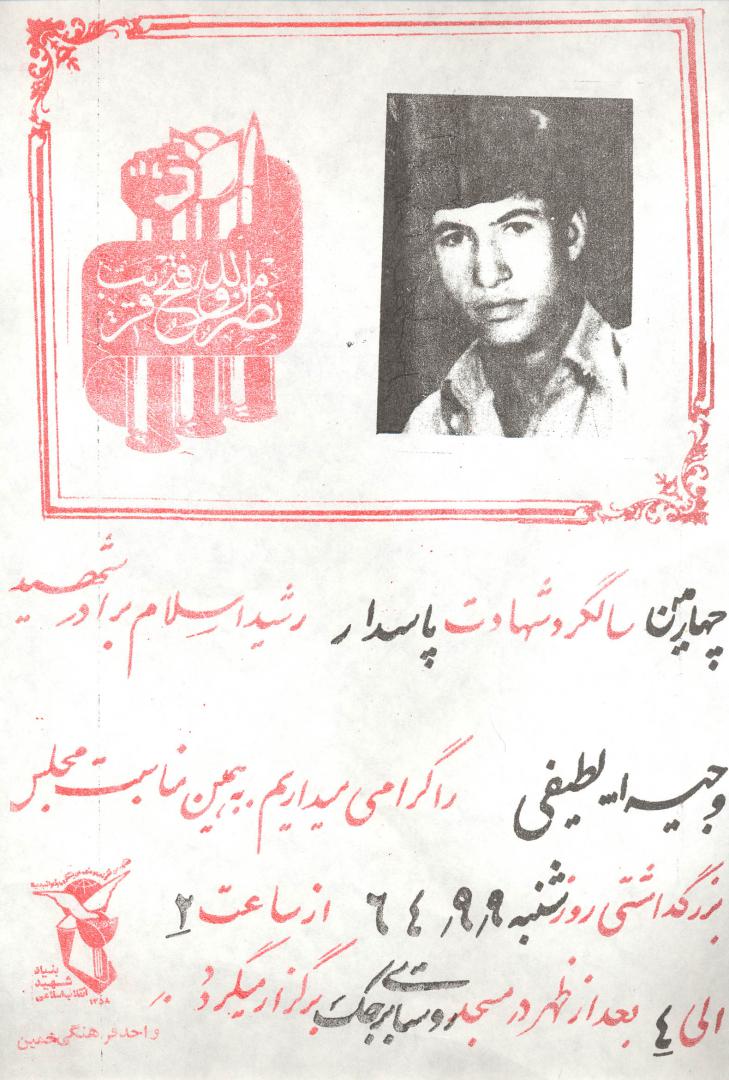 نصر من الله و فتح قریب
چهارمین سالگرد شهادت پاسدار رشید اسلام برادر شهید
وجیه اله لطیفی را گرامی میداریم. به همین مناسبت مجلس
بزرگداشتی روز شنبه ۶۴/۹/۹ از ساعت ۲
الی ۴ بعد از ظهر در مسجد روستای برجک برگزار میگردد.
بنیاد
شهید
انقلاب اسلامی
۱۳۵۸
واحد فرهنگی خمین